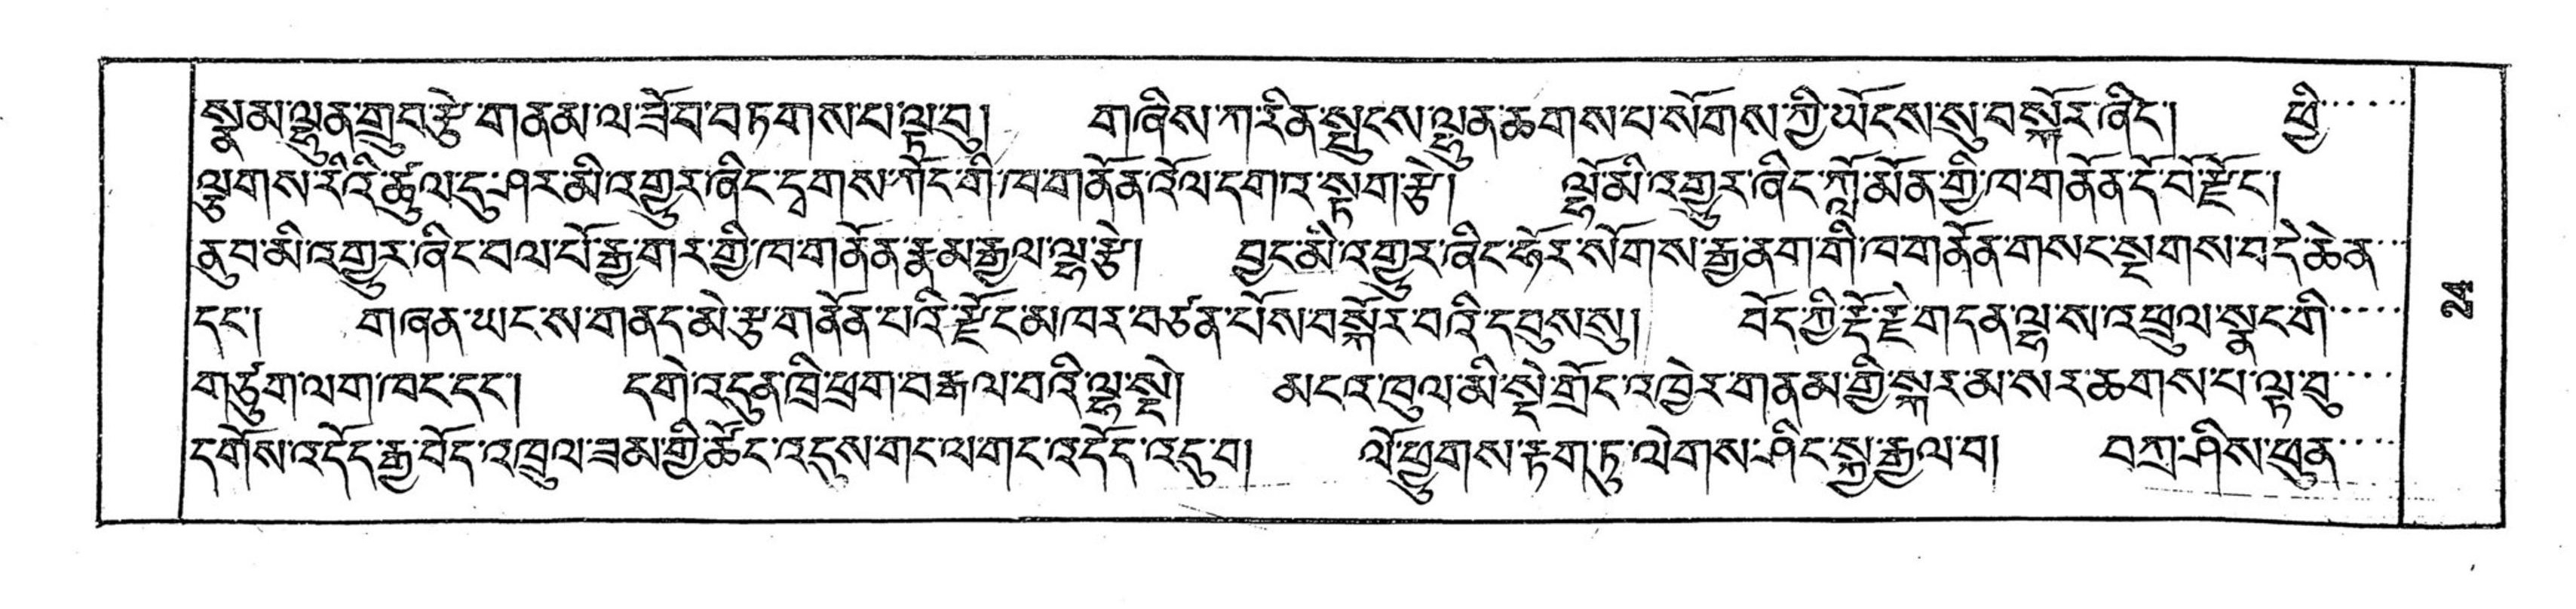 སྣམ་ལྷུན་གྲུབ་རྩེ་གནམ་ལ་ཟོབ་བཏགས་པ་ལྟ་བུ།  གཞིས་ཀ་རིན་སྤུངས་ལྷུན་ཆགས་པ་སོགས་ཀྱི་ཡོངས་སུ་བསྐོར་ཞིང་།  ཕྱི་
ལྕགས་རིའི་ཚུལ་དུ་ཤར་མི་འགྱུར་ཞིང་དྭགས་ཀོང་གི་ཁ་གནོན་འོལ་དགའ་སྟག་རྩེ།  ལྷོ་མི་འགྱུར་ཞིང་ཀློ་མོན་གྱི་ཁ་གནོན་དོ་བོ་རྫོང་།
ནུབ་མི་འགྱུར་ཞིང་བལ་པོ་རྒྱ་གར་གྱི་ཁ་གནོན་རྣམ་རྒྱལ་ལྷ་རྩེ།  བྱང་མི་འགྱུར་ཞིང་ཧོར་སོགས་རྒྱ་ནག་གི་ཁ་གནོན་གསང་སྔགས་བདེ་ཆེན་
དང་།  གཞན་ཡང་ས་གནད་མེ་རྩ་གནོན་པའི་རྫོང་མཁར་བཙན་པོས་བསྐོར་བའི་དབུས་སུ།  བོད་ཀྱི་རྡོ་རྗེ་གདན་ལྷ་ས་འཕྲུལ་སྣང་གི་
གཙུག་ལག་ཁང་དང་།  དགེ་འདུན་ཁྲི་ཕྲག་བརྒལ་བའི་ལྷ་སྡེ།  མངའ་ཁུལ་མི་སྡེ་གྲོང་འཁྱེར་གནམ་གྱི་སྐར་མ་སར་ཆགས་པ་ལྟ་བུ་
དགོས་འདོད་རྒྱ་བོད་འཁྲུལ་ཟམ་གྱི་ཚོང་འདུས་གང་ལ་གང་འདོད་འདུ་བ།  ལོ་ཕྱུགས་རྟག་ཏུ་ལེགས་ཤིང་སྐྱ་རྒྱལ་བ།  བཀྲ་ཤིས་ཕུན་